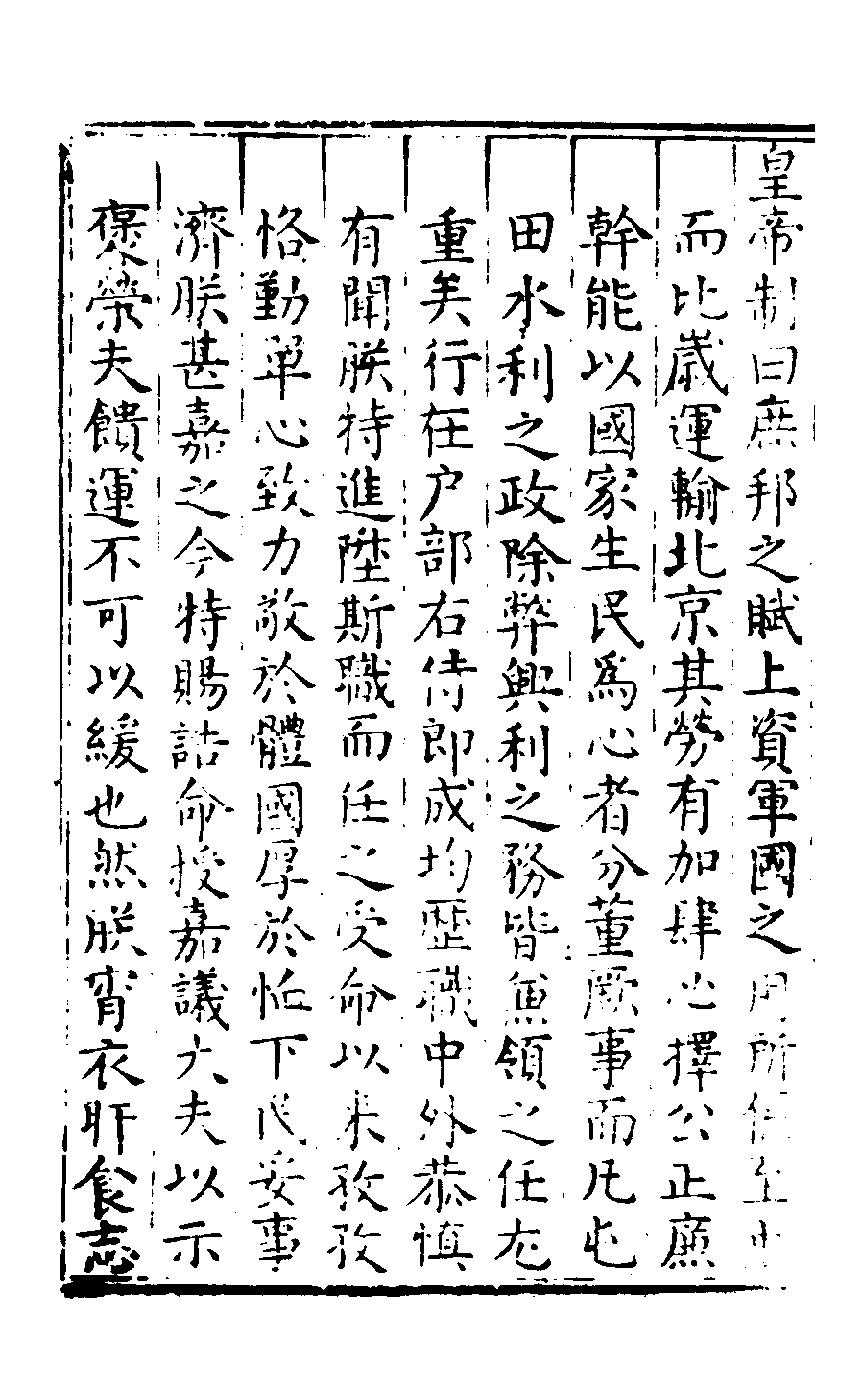 皇帝制曰庶邦之賦上資軍國之用所係至
而比歲運輸北京其勞有加肆必擇公正廉
幹能以國家生民爲心者分董厥事而凡屯
田水利之政除弊興利之務皆兼領之任尤
重矣行在户部右侍郎成均歷職中外恭慎
有聞朕特進陞斯職而任之受命以来孜孜
恪勤單心致力敬於體國厚於恤下民妥事
濟朕甚嘉之今特賜誥命授嘉議大夫以示
褒榮夫饋運不可以緩也然朕宵衣旰食志